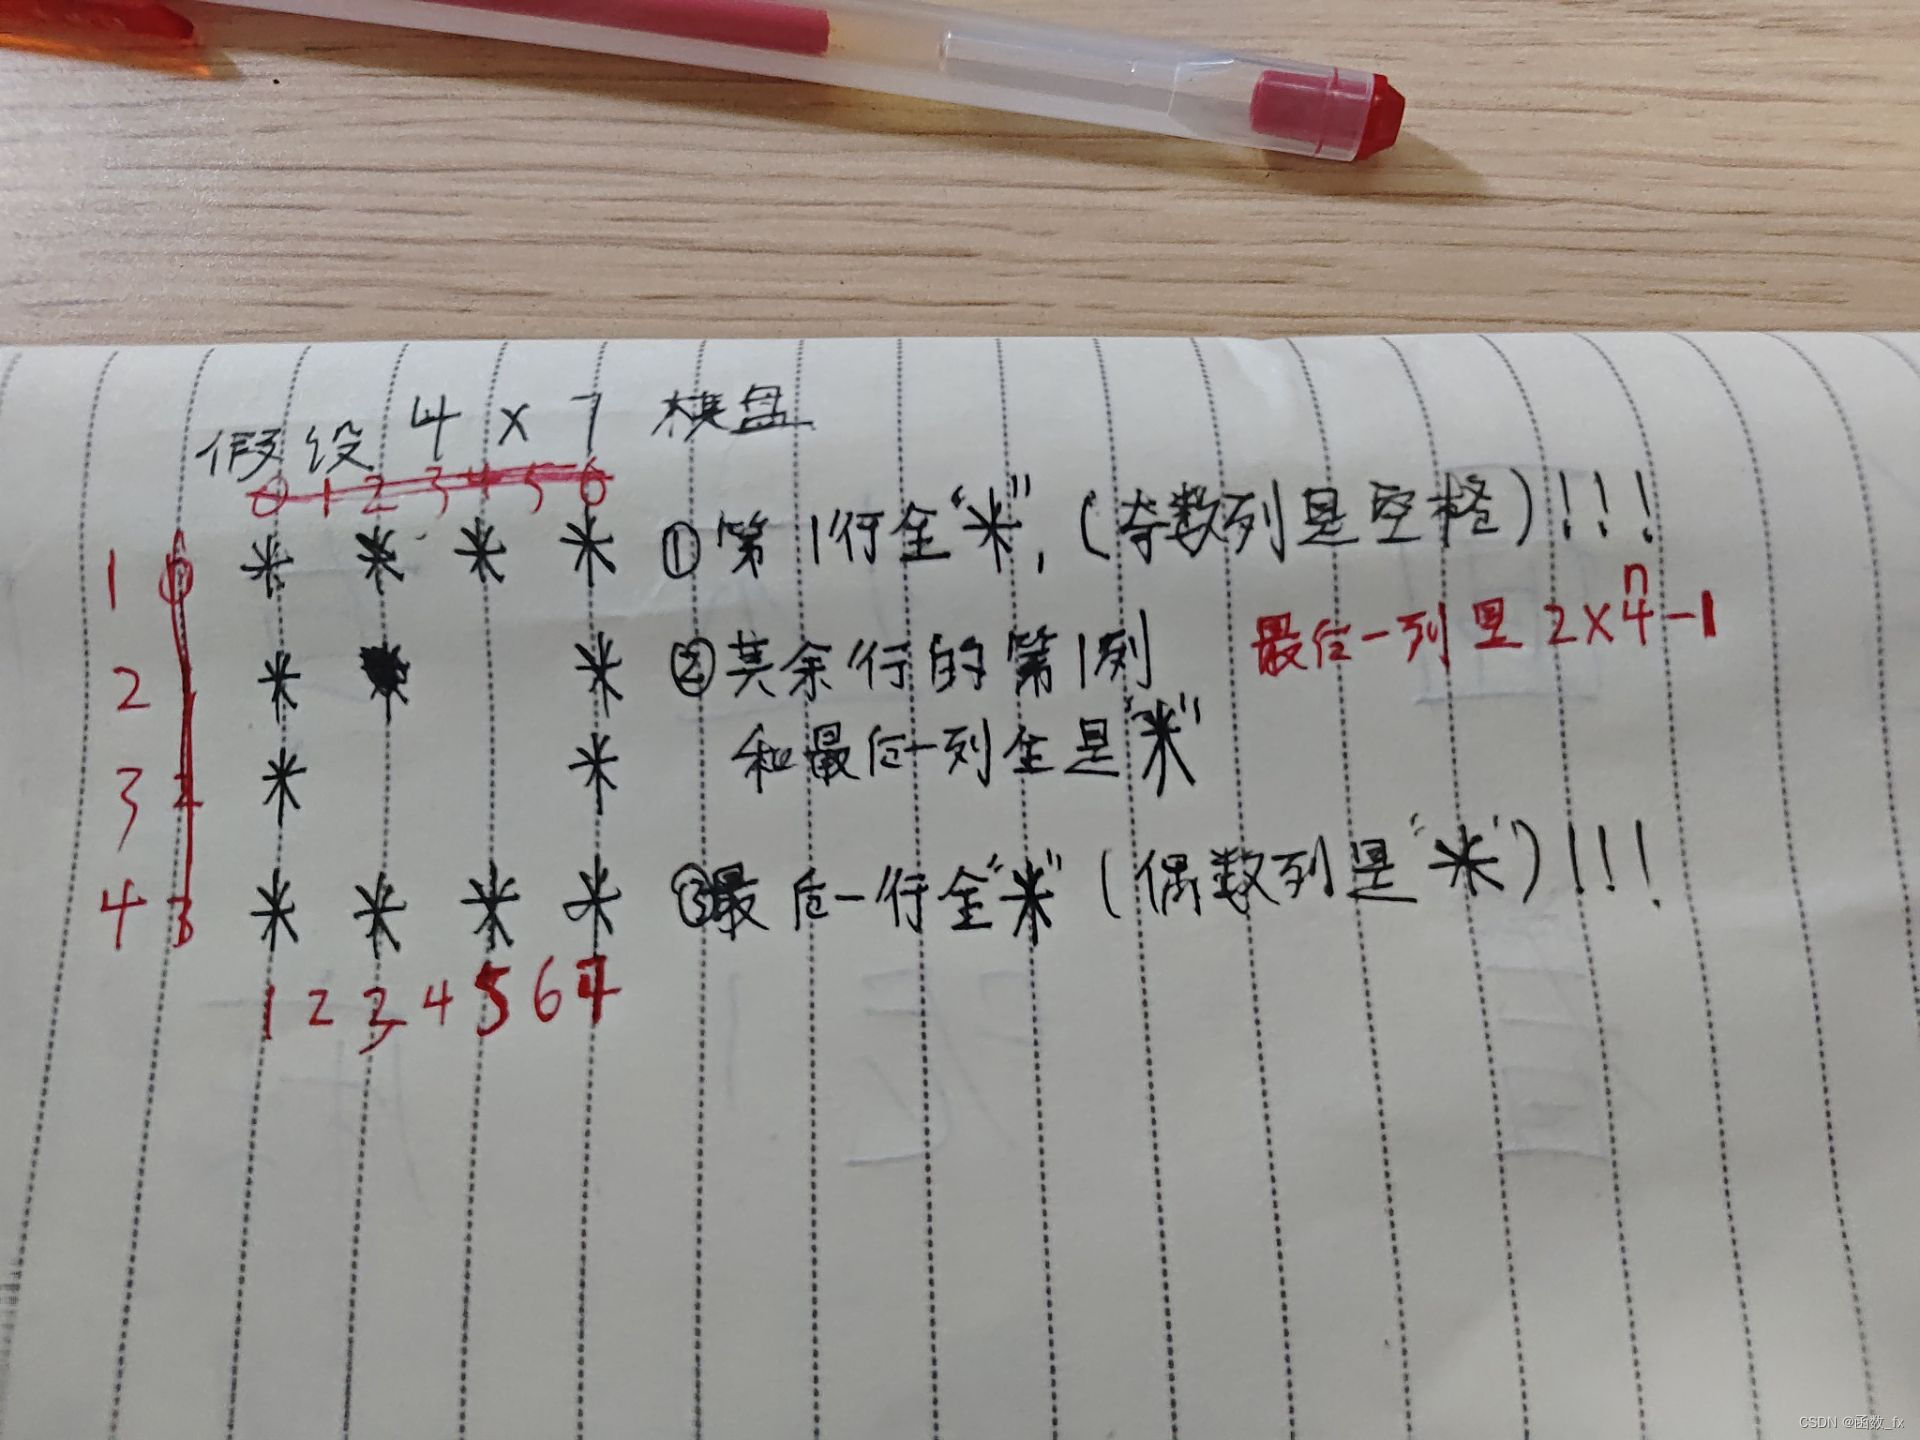 假设 4 × 7 棋盘
0 1 2 3 4 5 6
1 0 * * * * ①第1行全“米”,(奇数列是空格)!!!
n
最后一列里 2×4-1
2 * * ②其余行的第1列
和最后一列全是“米”
3 2 * *
4 3 * * * * ③最后一行全“米”(偶数列是“米”)!!!
1 2 3 4 5 6 7
CSDN @函数_fx